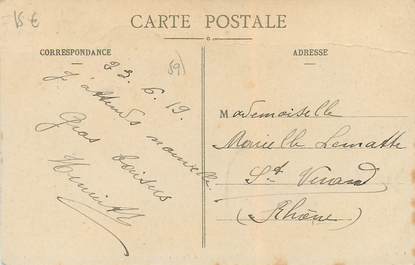 15 €
CARTE POSTALE
CORRESPONDANCE
ADRESSE
59
23.6.19.
J'attends nouvelle
Gros baisers
Henriette
Mademoiselle
Marielle Lematte
St Verand
(Rhône)